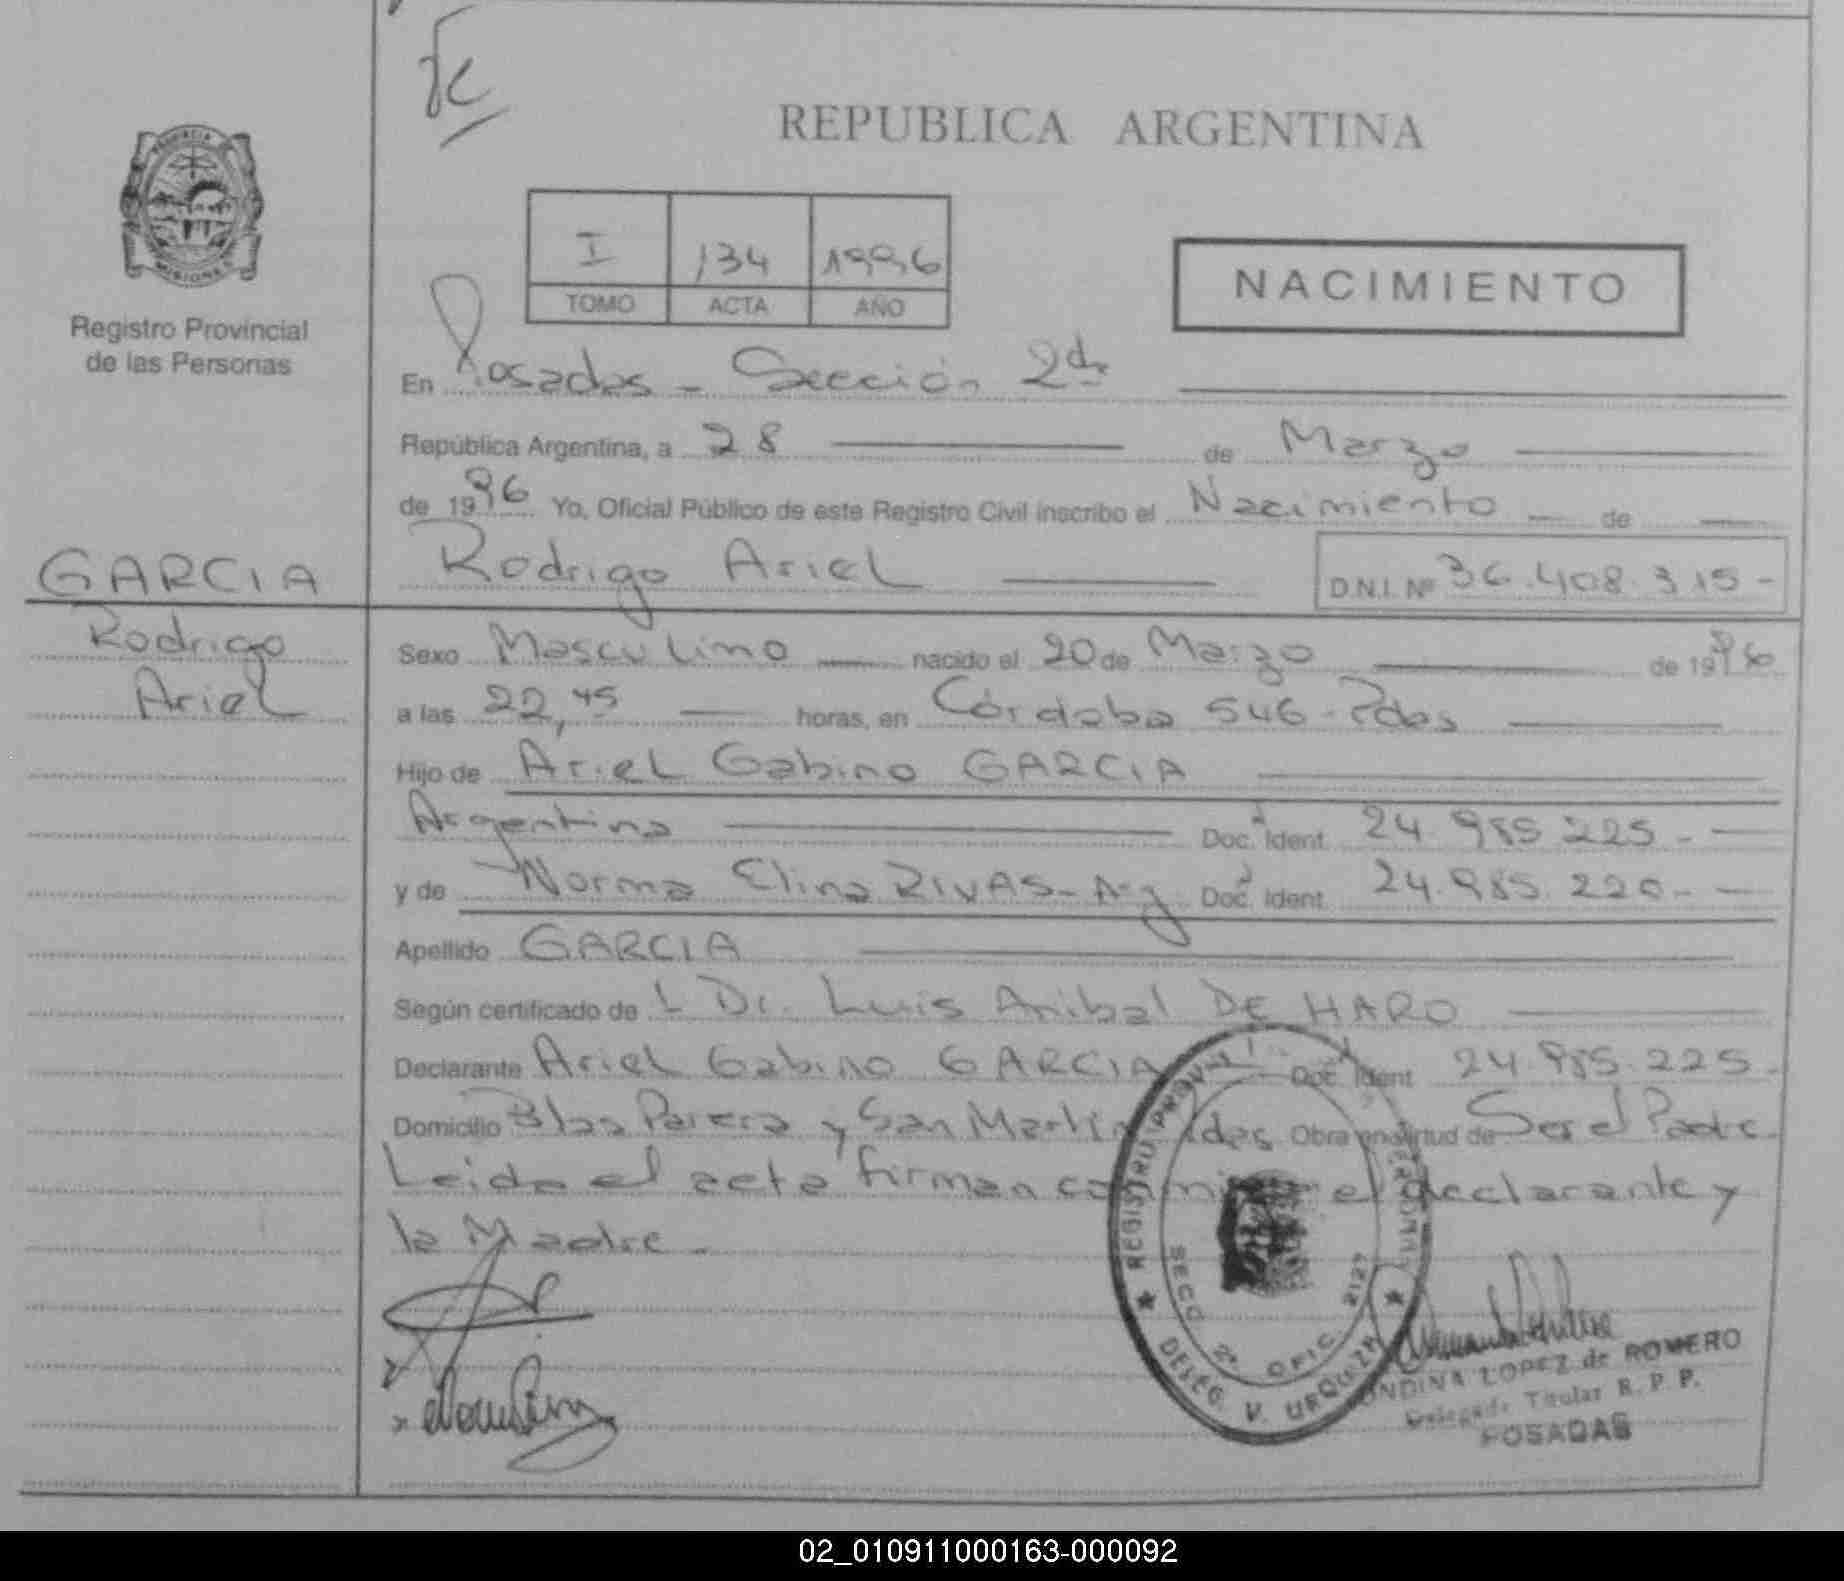 REPUBLICA ARGENTINA
PROVINCIA
MISIONES
Registro Provincial
de las Personas
I 134 1996
TOMO ACTA AÑO
NACIMIENTO
En Posadas - Sección 2da
República Argentina, a 28 de Marzo
de 1996 Yo, Oficial Público de este Registro Civil inscribo el Nacimiento - de -
GARCIA
Rodrigo Ariel
D.N.I. Nº 36.408.315-
Rodrigo
Ariel
Sexo Masculino nacido el 20 de Marzo de 1996
a las 22,45 horas, en Córdoba 546 - Pdas
Hijo de Ariel Gabino GARCIA
Argentina Doc. Ident. 24.985.225.-
y de Norma Elina RIVAS - Arg Doc. Ident. 24.985.220.-
Apellido GARCIA
Según certificado de L Dr. Luis Anibal DE HARO
Declarante Ariel Gabino GARCIA Doc. Ident. 24.985.225.
Domicilio Blas Parera y San Martín Pdas Obra en virtud de Ser el Padre.
Leida el acta firman conmigo el declarante y
la Madre.-
REGISTRO PROV.
SECC. 2ª OFIC. 2127
DELEG. V. URQUIZA
ONDINA LOPEZ de ROMERO
Delegada Titular R. P. P.
POSADAS
02_010911000163-000092